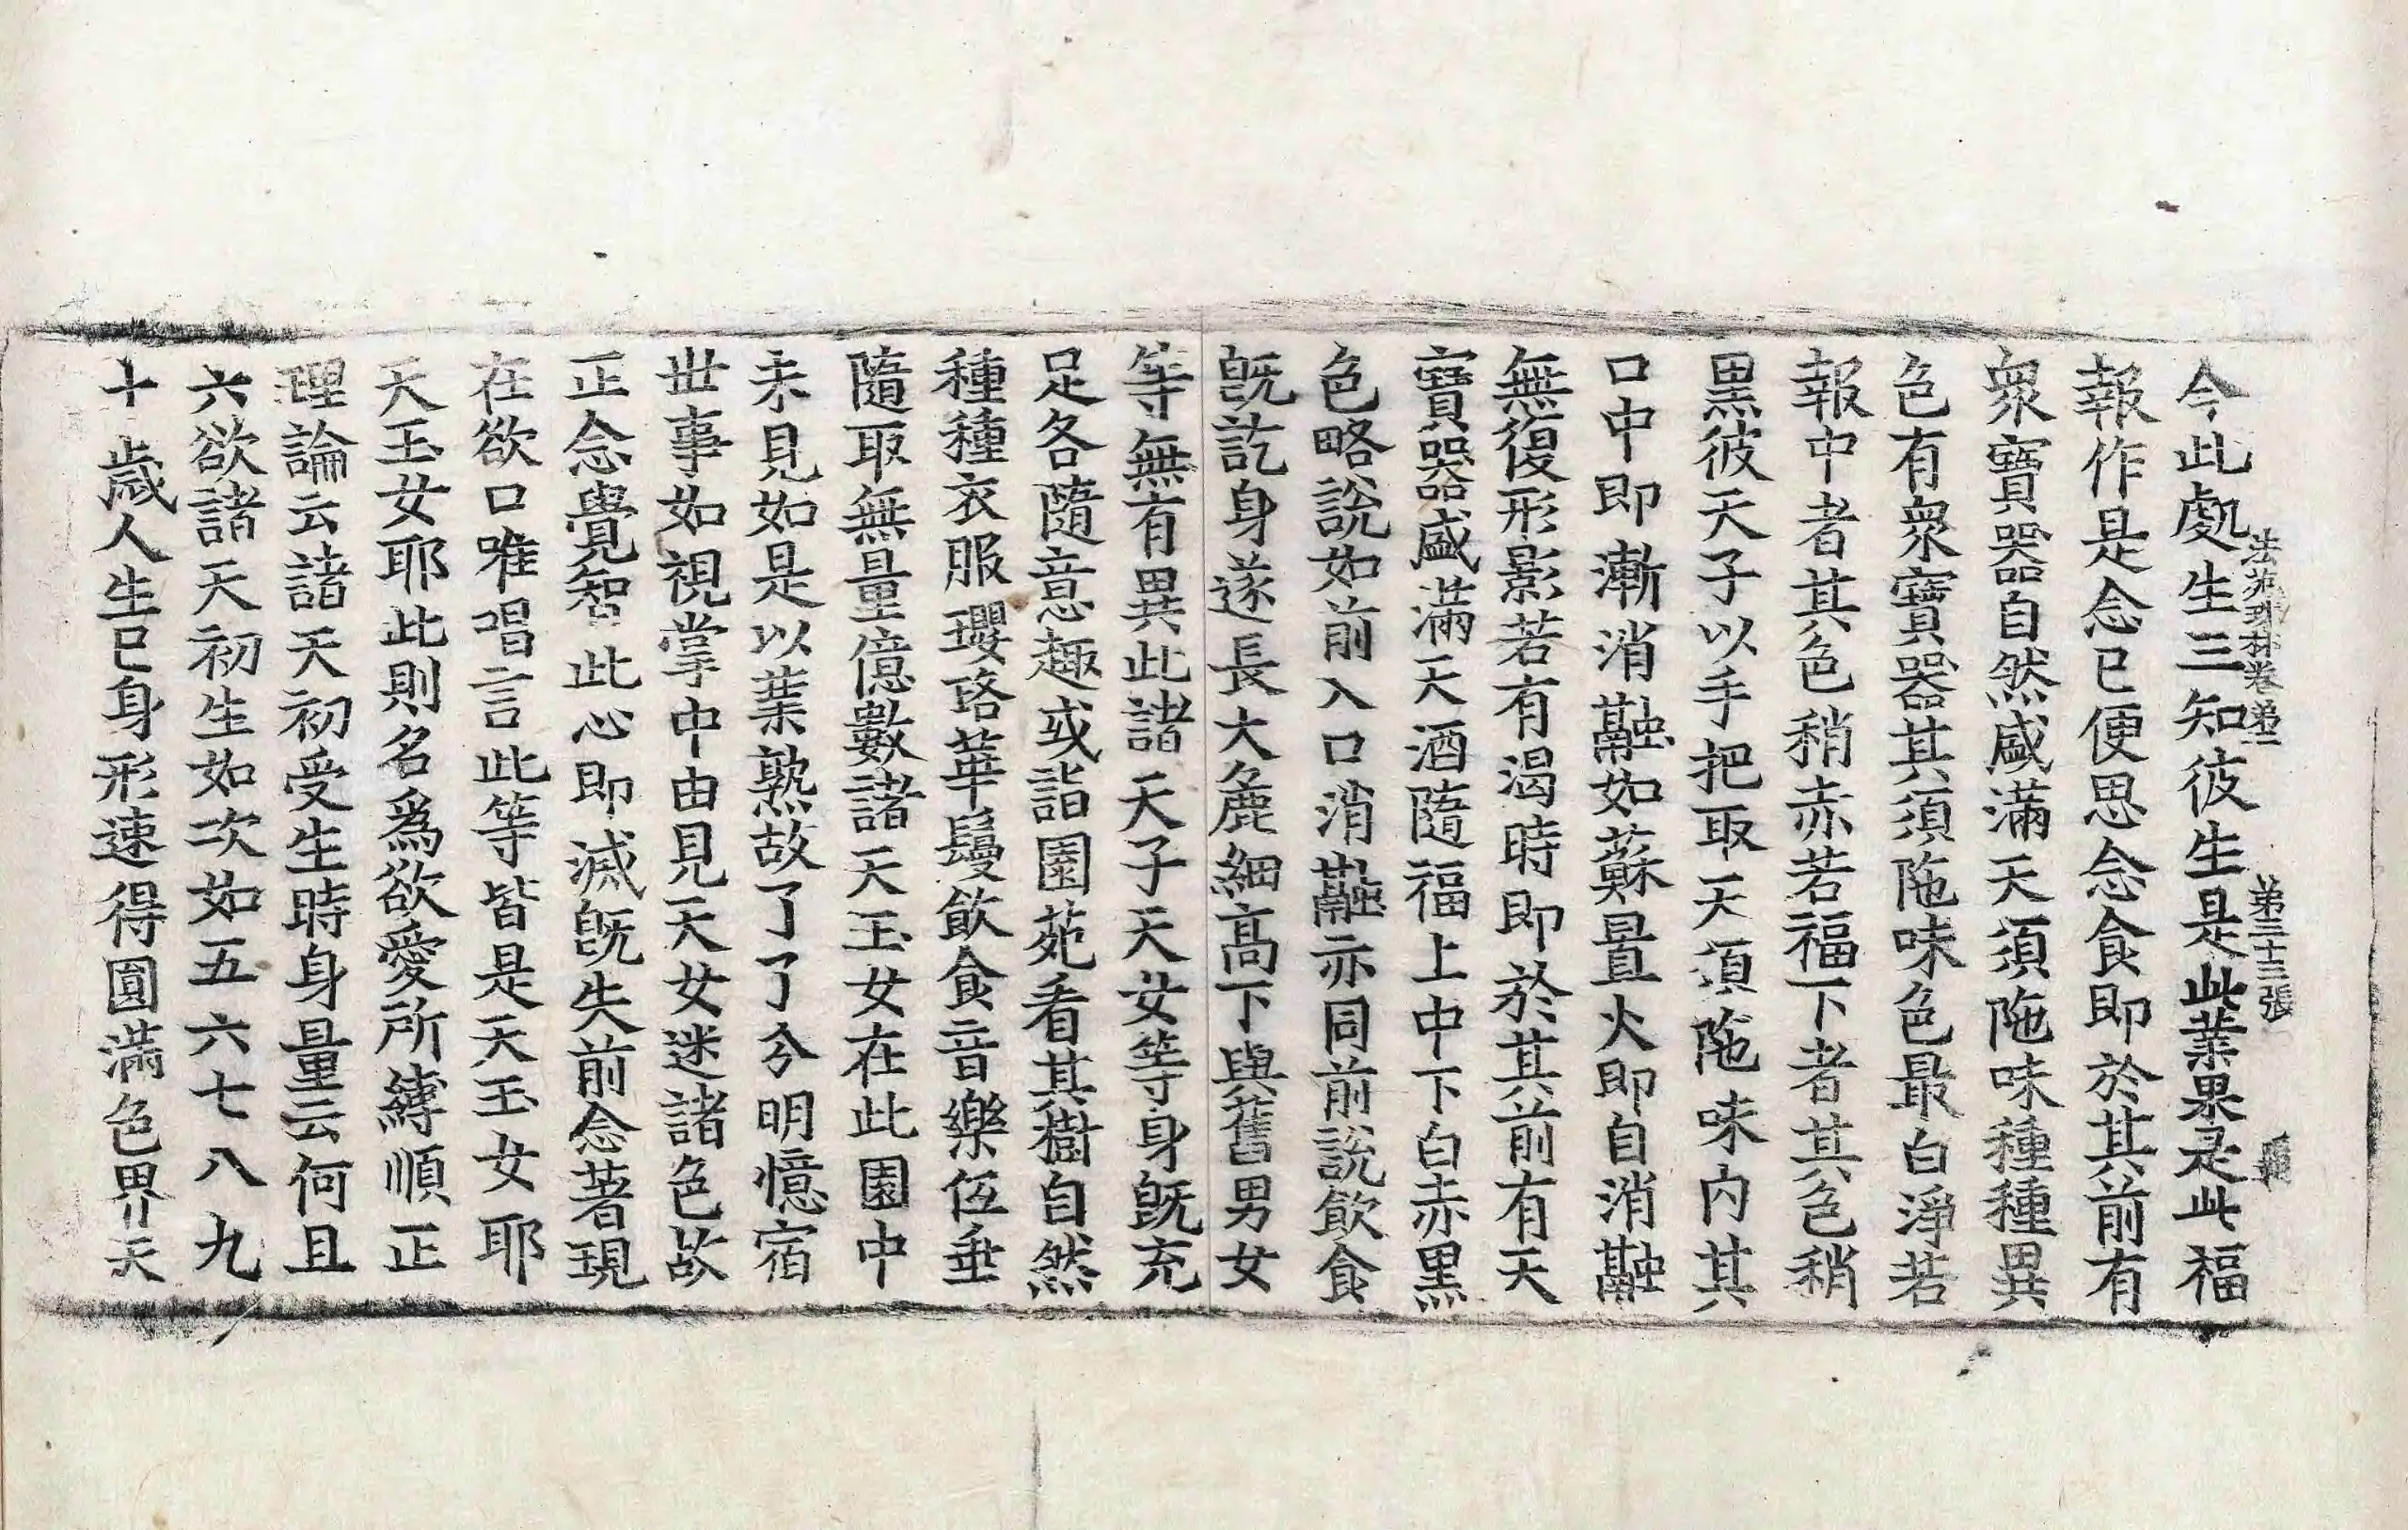 法苑珠林卷第二　第三十三張
今此處生三知彼生是此業果是此福
報作是念已便思念食即於其前有
衆寶器自然盛滿天須陁味種種異
色有衆寶器其須陁味色最白淨若
報中者其色稍赤若福下者其色稍
黑彼天子以手把取天須陁味内其
口中即漸消融如蘇置火即自消融
無復形影若有渴時即於其前有天
寶器盛滿天酒隨福上中下白赤黑
色略說如前入口消融亦同前說飲食
旣訖身遂長大麁細高下與舊男女
等無有異此諸天子天女等身旣充
足各隨意趣或詣園苑看其樹自然
種種衣服瓔珞華鬘飲食音樂伍垂
隨取無量億數諸天玉女在此園中
未見如是以業熟故了了分明憶宿
丗事如視掌中由見天女迷諸色故
正念覺智此心即滅旣失前念著現
在欲口唯唱言此等皆是天玉女耶
天玉女耶此則名爲欲愛所縛順正
理論云諸天初受生時身量云何且
六欲諸天初生如次如五六七八九
十歲人生已身形速得圓滿色界天